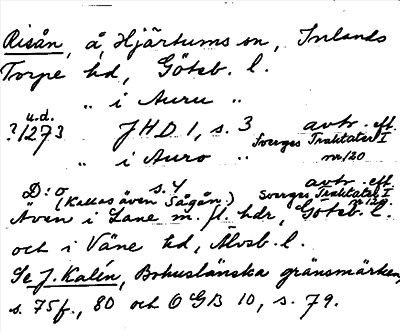 Risån, å, Hjärtums sn, Inlands
Torpe hd, Göteb. l.
„ i Auru „
u.d.
?1273 JHD 1, s. 3 avtr. eft.
Sverges Traktater I
nr 120
„ i Auro „
D:o s. 4 avtr. eft.
Sverges Traktater I
nr 120.
(Kallas även Sågån.)
Även i Lane m. fl. hdr, Göteb. l.
och i Väne hd, Älvsb. l.
Se J. Kalén, Bohuslänska gränsmärken,
s. 75 f., 80 och OGB 10, s. 79.